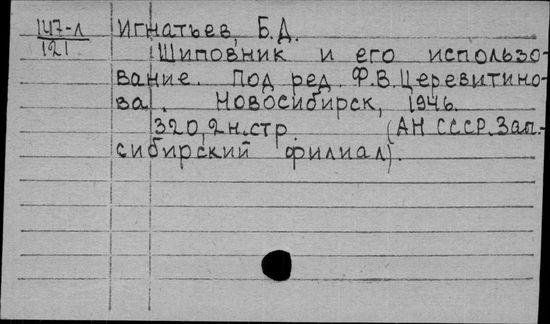 147-л Игнатьев, Б.Д.
121 Шиповник и его использо-
вание. Под ред. Ф.В. Церевитино-
ва. Новосибирск, 1946.
320, 2 н. стр. (АН СССР. Зап.-
сибирский филиал).